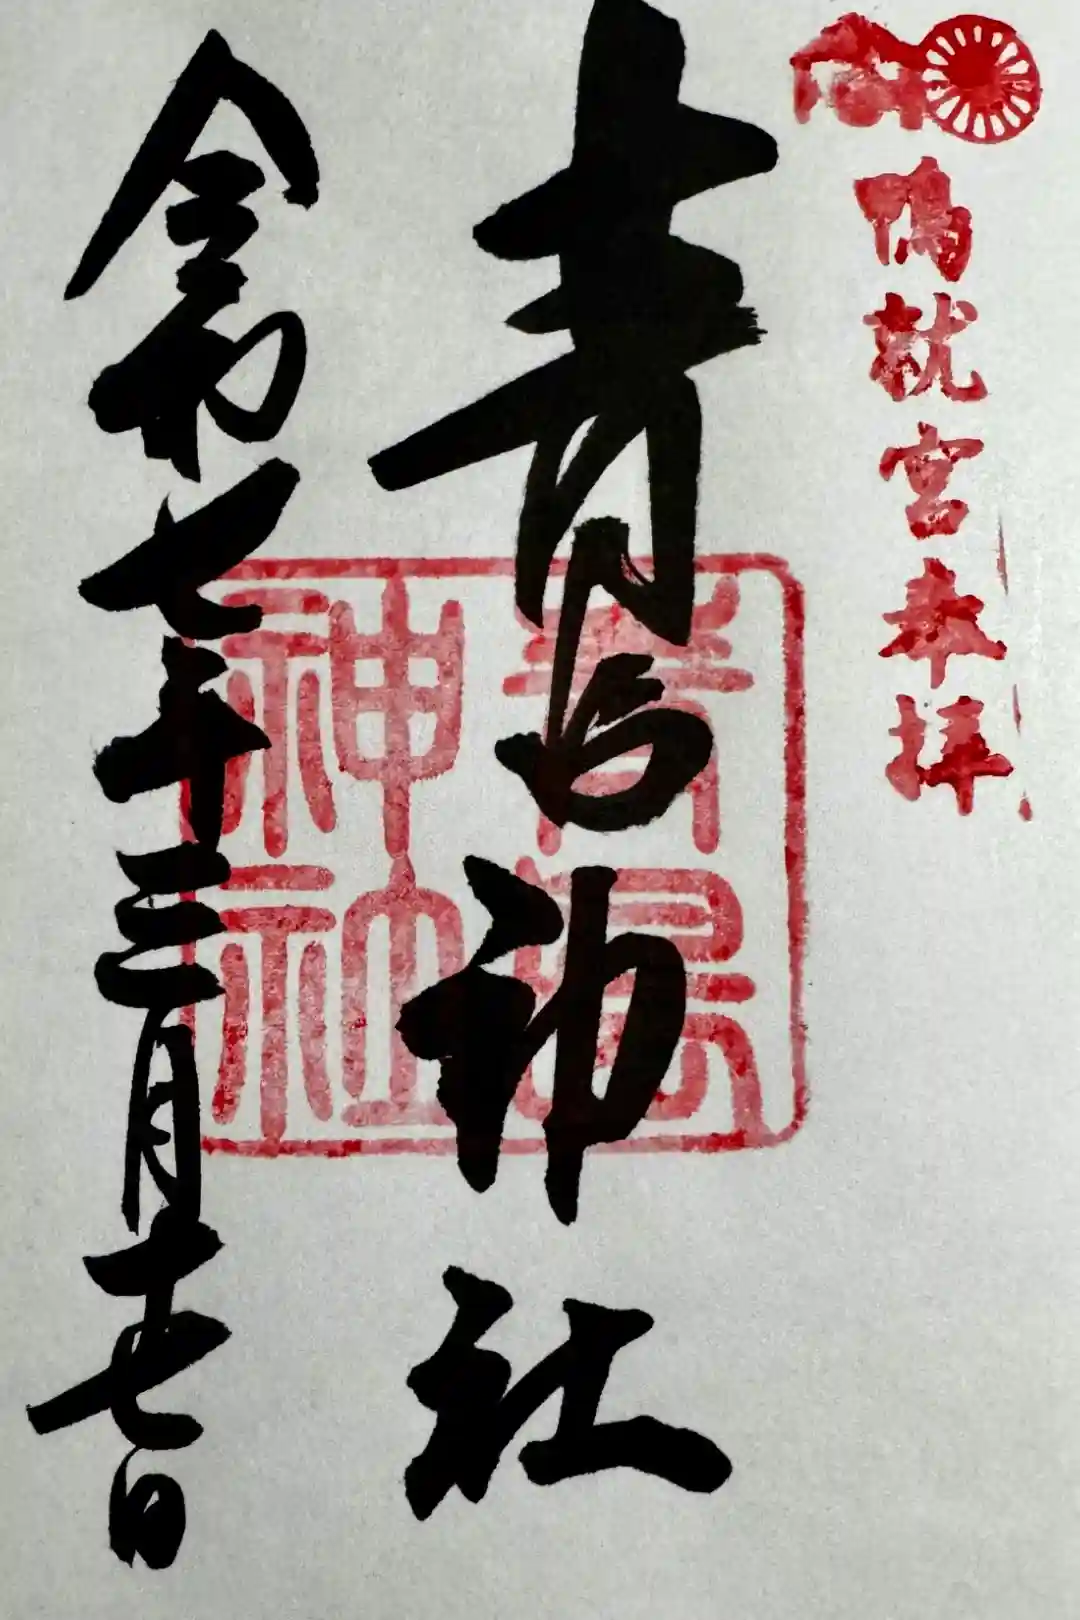 鴨就宮奉拝
青島神社
令和七年三月十七日
青島
神社